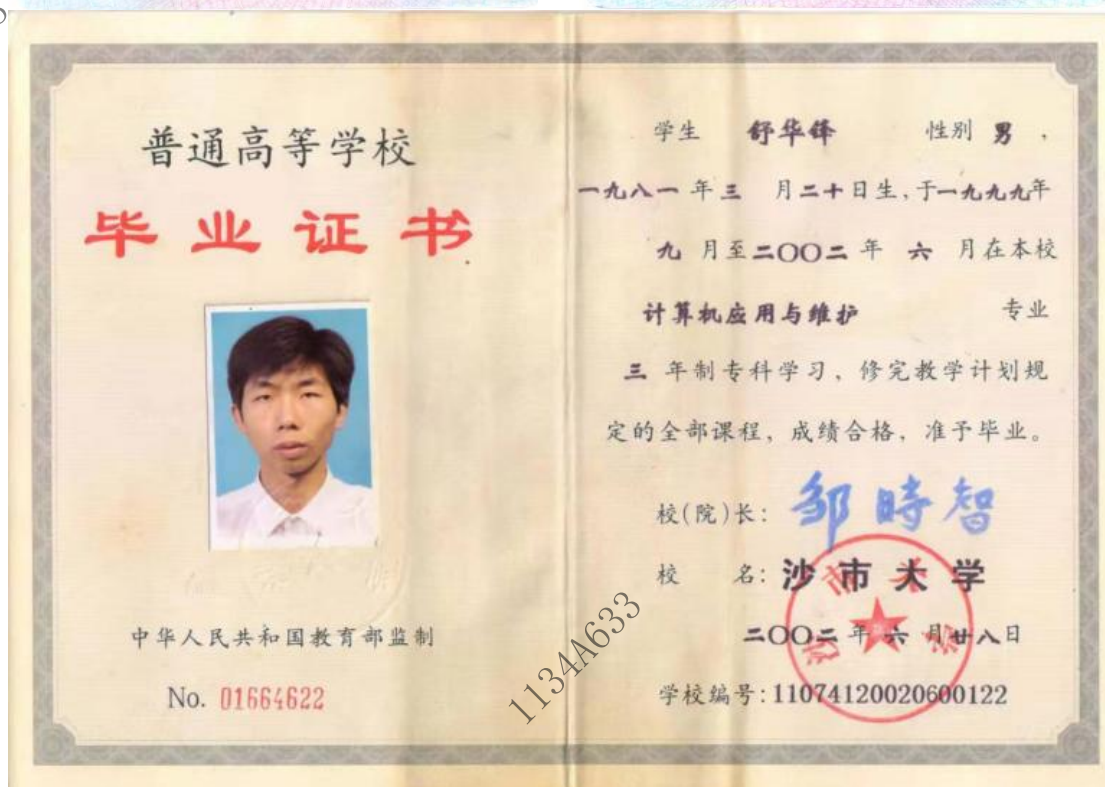 普通高等学校
毕业证书
中华人民共和国教育部监制
No. 01664622
学生 舒华锋 性别 男 ,
一九八一 年 三 月 二十 日生, 于一九九九年
九 月至二〇〇二 年 六 月在本校
计算机应用与维护 专业
三 年制专科学习、修完教学计划规
定的全部课程, 成绩合格, 准予毕业。
校(院)长: 邹時智
校 名: 沙市大学
二〇〇二 年 六 月 廿八 日
学校编号: 11074120020600122
1134A633